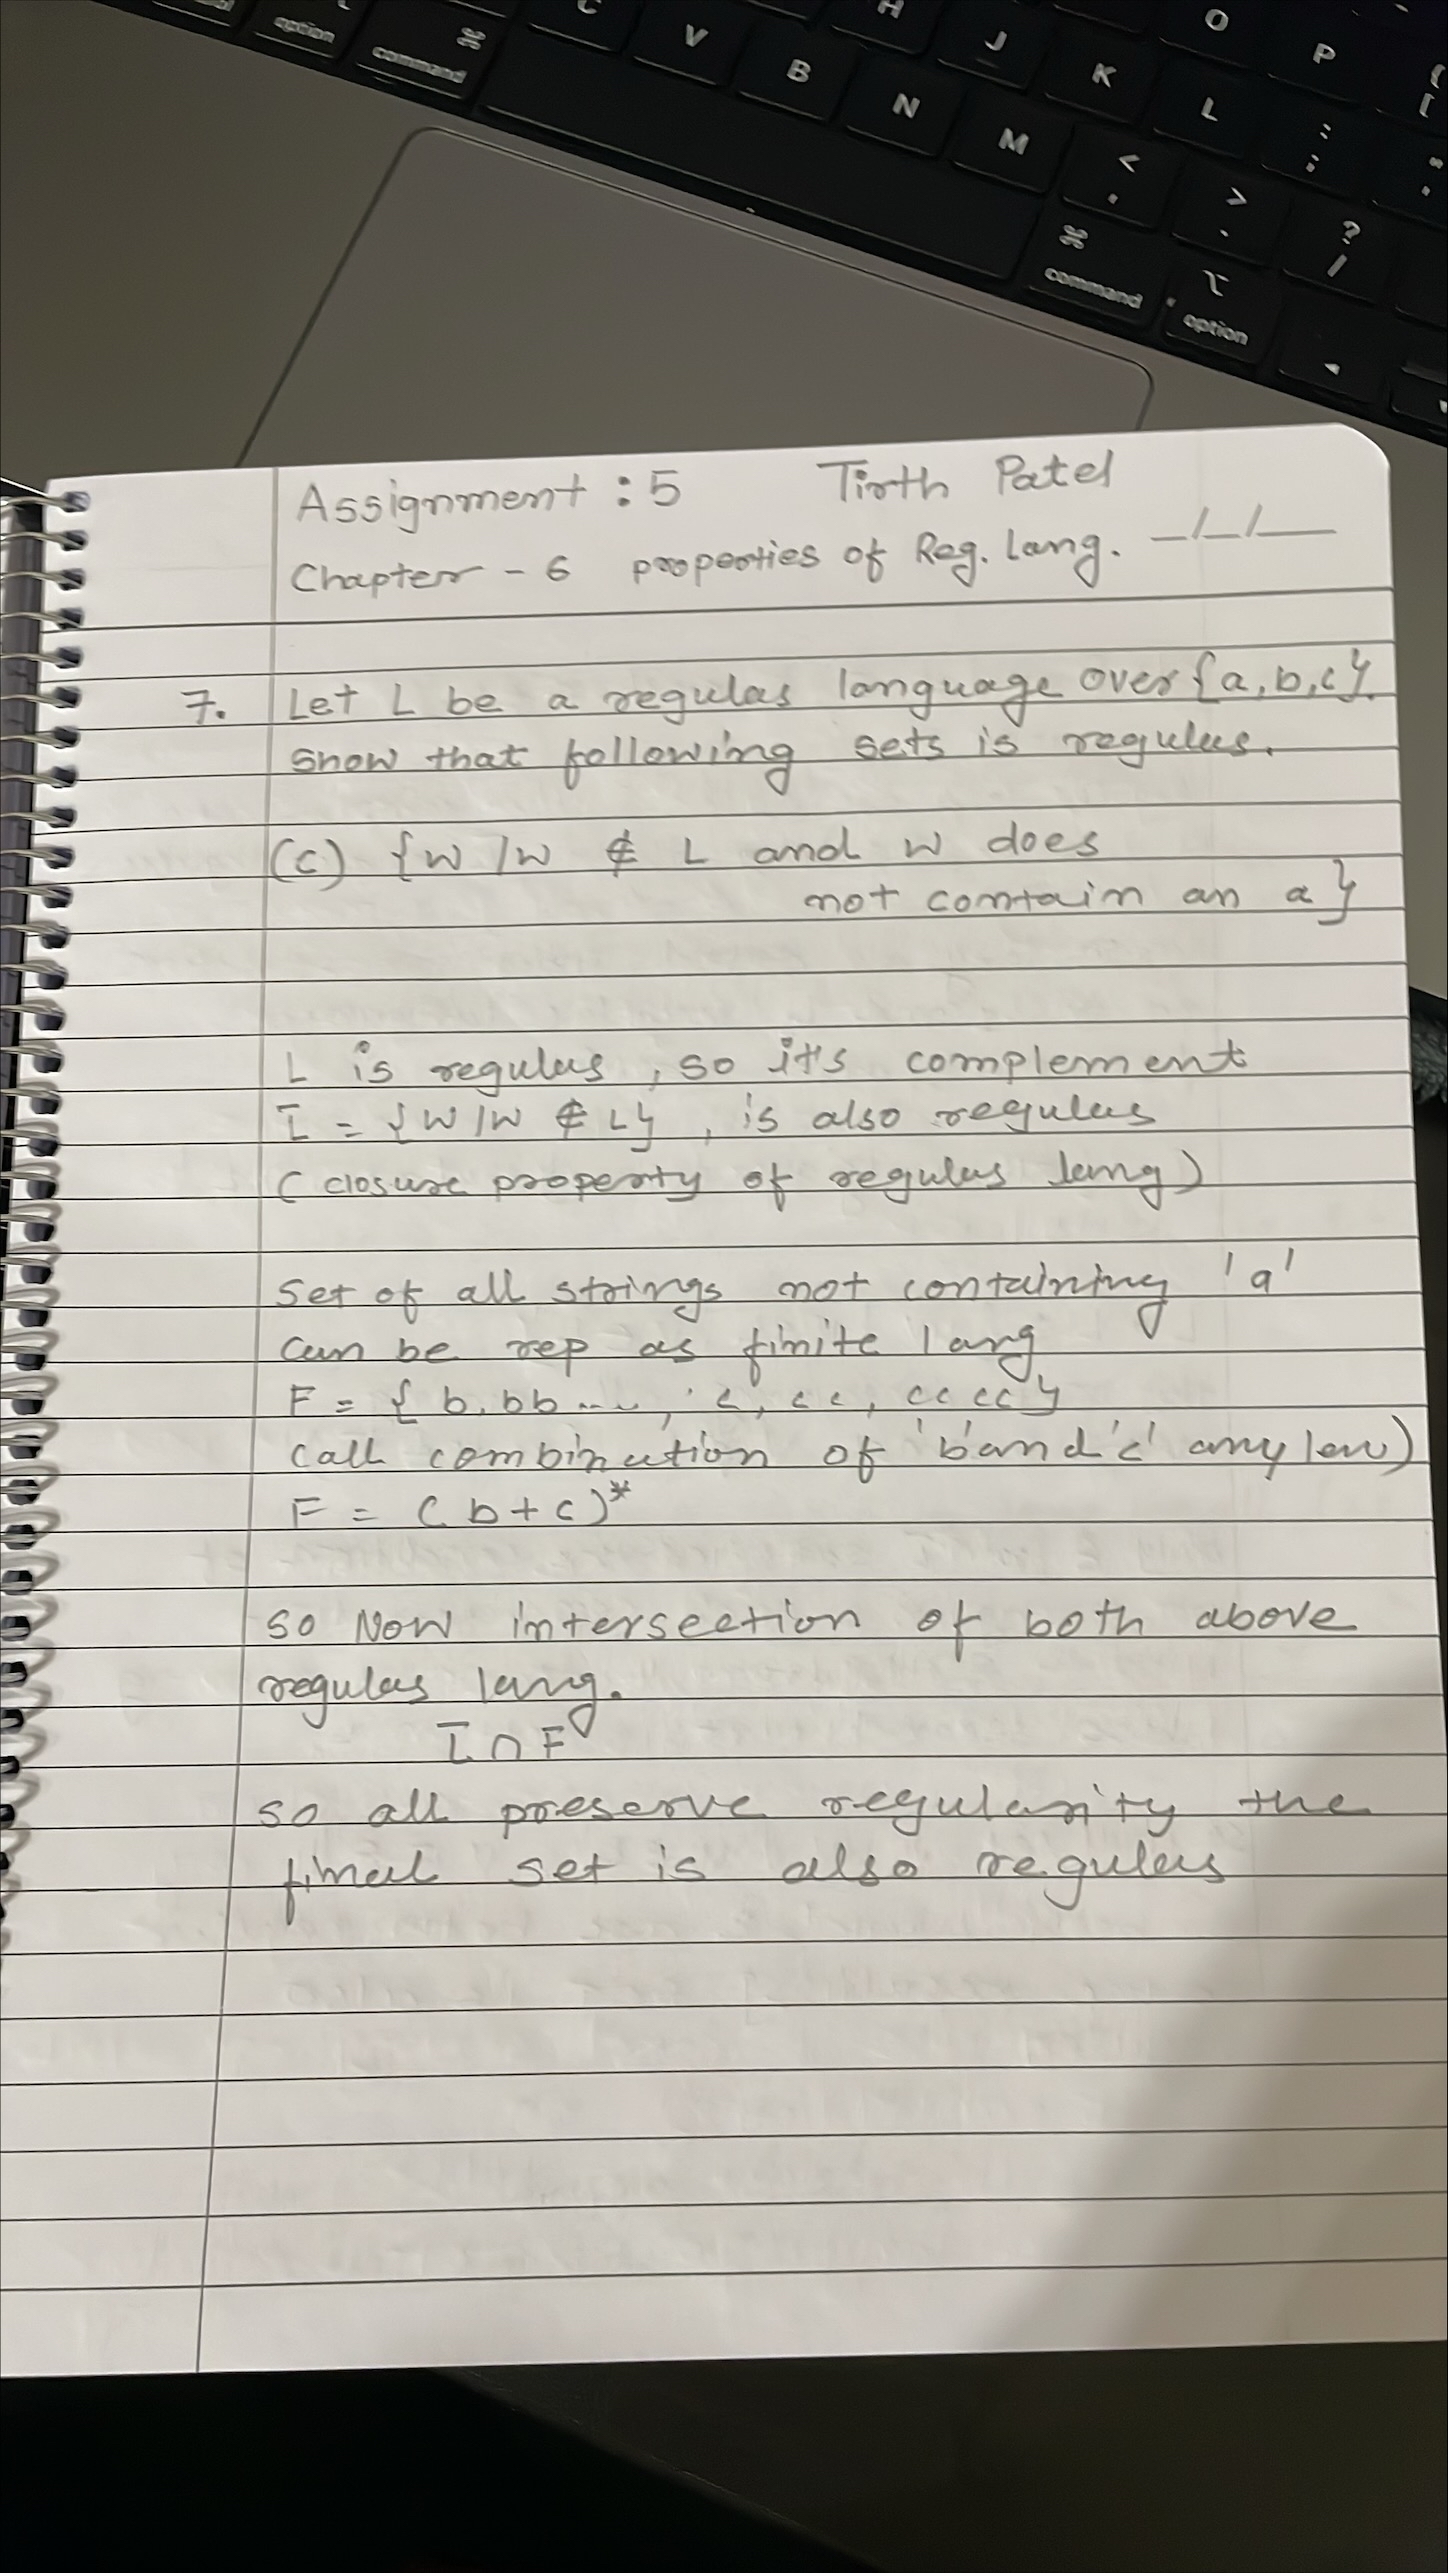 option
⌘
command
C
V
B
N
H
J
M
K
L
O
P
{
[
:
;
<
,
>
.
?
/
⌘
command
⌥
option
Assignment : 5 Tirth Patel
Chapter - 6 properties of Reg. Lang. _/_/__
7. Let L be a regular language over {a, b, c}.
Show that following sets is regular.
(c) {w | w ∉ L and w does
not contain an a}
L is regular, so it's complement
L̅ = {w | w ∉ L}, is also regular
(closure property of regular lang)
Set of all strings not containing 'a'
can be rep as finite lang
F = { b, bb ..., c, cc, cccc}
(all combination of 'b' and 'c' any len)
F = (b+c)*
So Now intersection of both above
regular lang.
L̅ ∩ F
so all preserve regularity the
final set is also regular